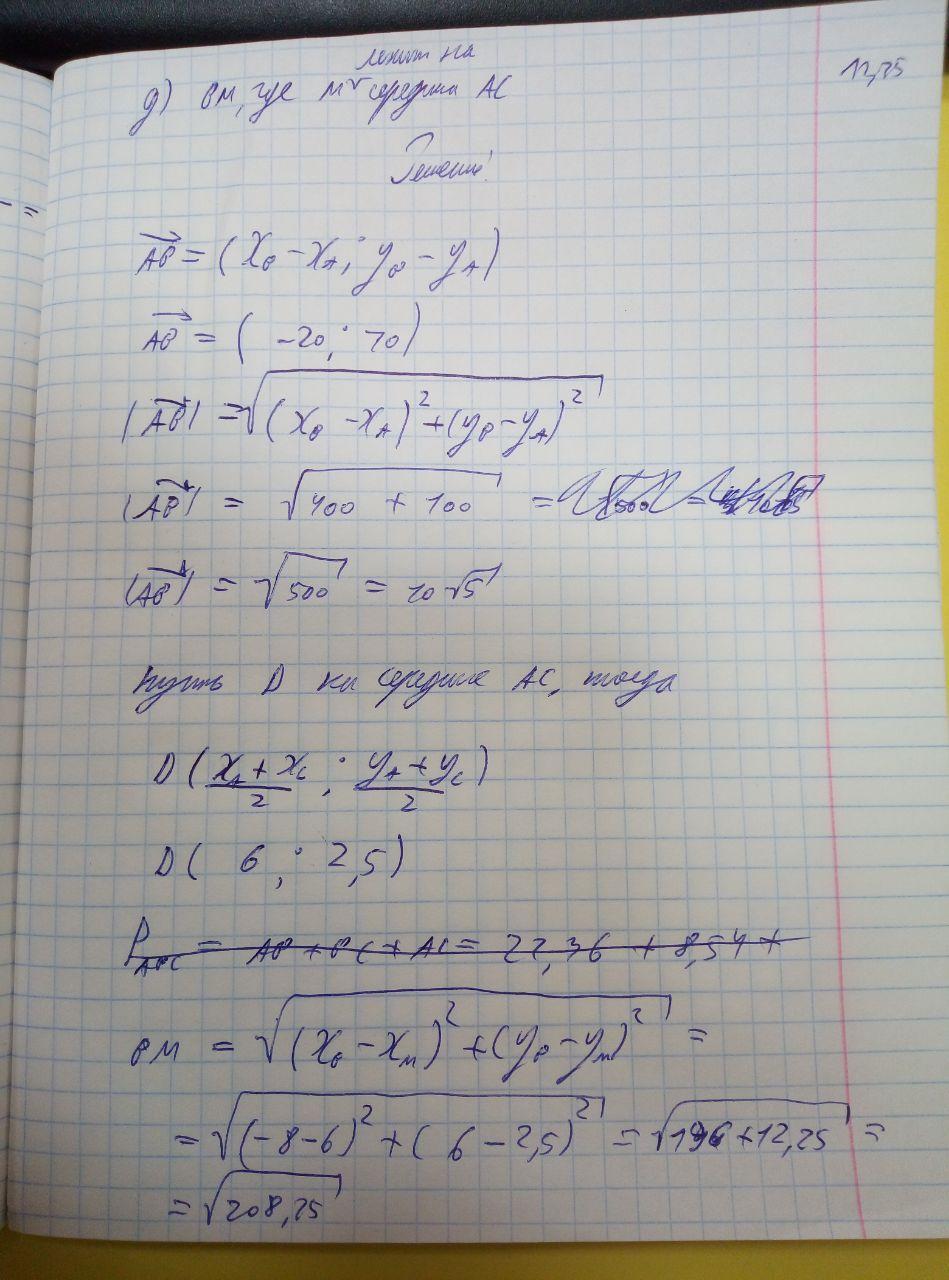 лежит на
д) BM, где M середина AC
12,25
Решение:
AB = (x_B − x_A; y_B − y_A)
− =
AB = ( −20; 10)
|AB| = √((x_B − x_A)² + (y_B − y_A)²)
|AB| = √(400 + 100) =
|AB| = √500 = 10√5
Пусть D на середине AC, тогда
D((x_A + x_C)/2 ; (y_A + y_C)/2)
D( 6 ; 2,5)
P_ABC = AB + BC + AC = 22,36 + 8,54 +
BM = √((x_B − x_M)² + (y_B − y_M)²) =
= √((−8−6)² + (6 − 2,5)²) = √(196 + 12,25) =
= √208,25